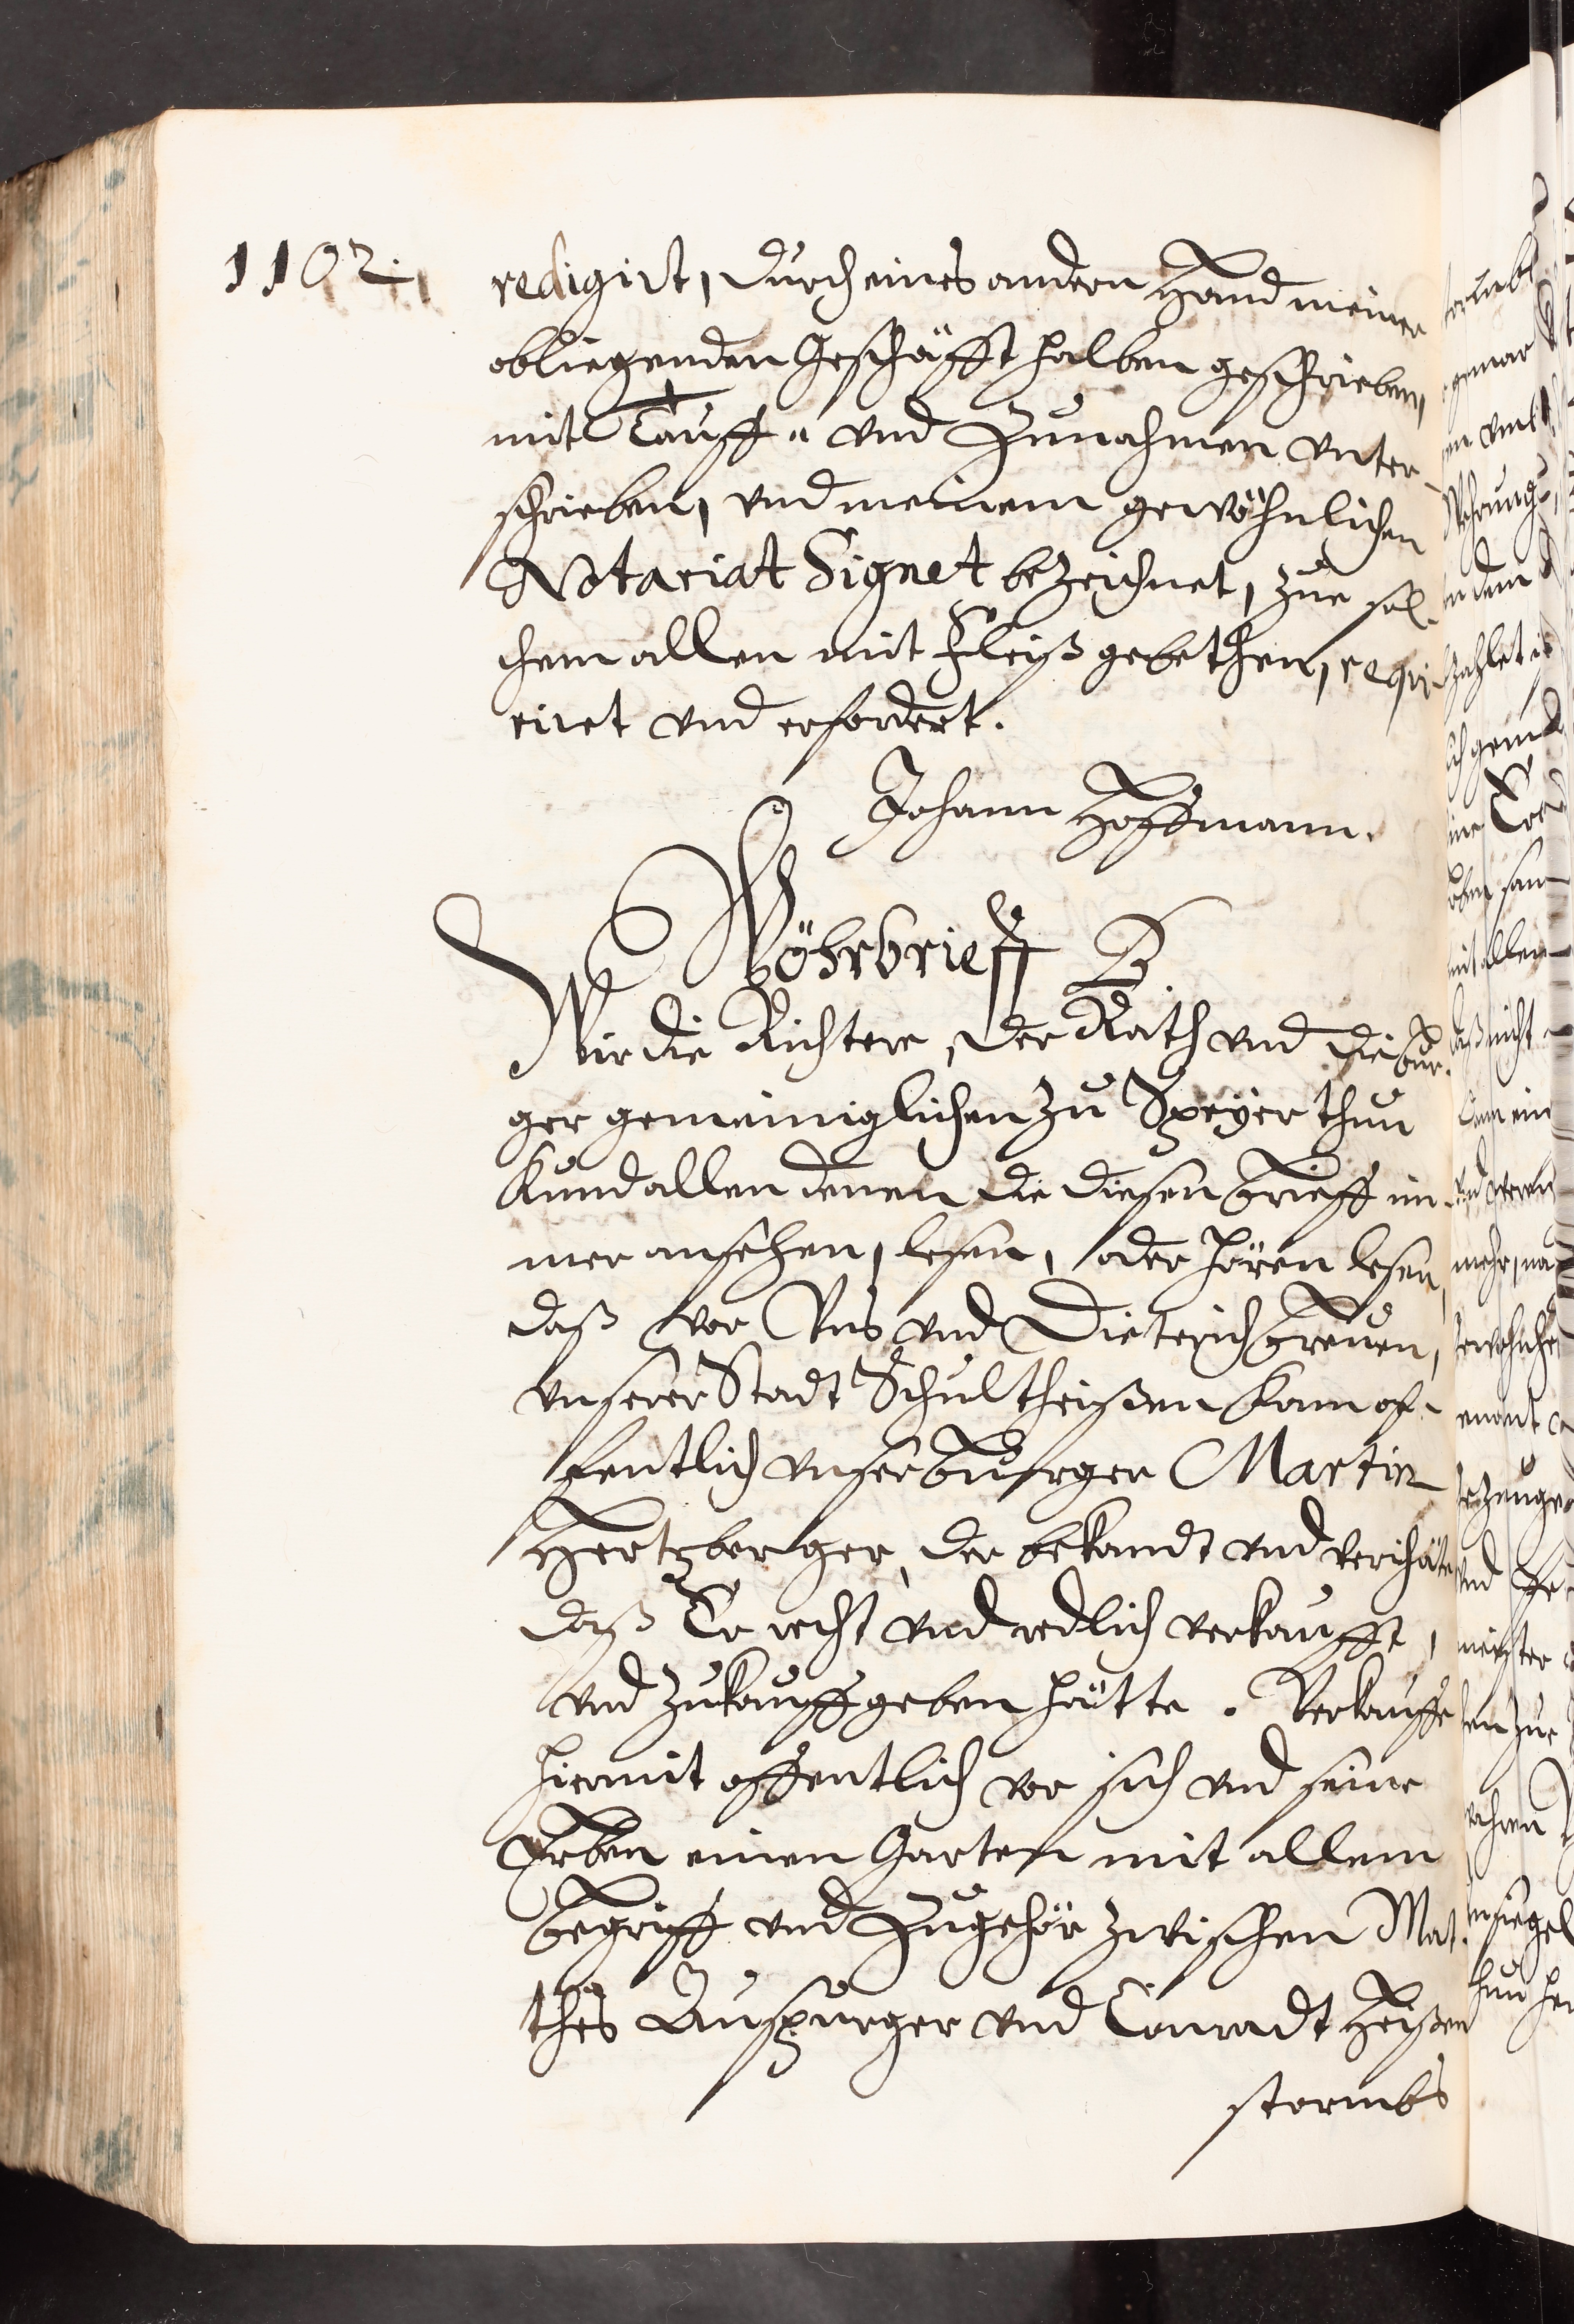 1102.
redigirt, durch eines andern Hand meiner
obliegenden Geschäfft halben geschrieben,
mit Tauff- und Zunahmen unter-
schrieben, und meinem gewöhnlichen
Notariat Signet bezeichnet, zue sol-
chem allen mit Fleiß gebethen, requi-
riret und erfordert.
Johann Hoffmann.
Wöhrbrieff B.
Wir die Richtere, der Rath und die bur-
ger gemeiniglichen zu Speyer thun
Kund allen denen die diesen brieff im-
mer ansehen, lesen, oder hören lesen,
daß vor Uns und Dieterich breuen,
unserer Stadt Schultheißen kam of-
fentlich unser burger Martin
Hertzberger, der bekandt und verichäte
daß Er recht und redlich verkaufft,
und zukauff geben hätte. Verkauffe
hiermit offentlich vor sich und seine
Erben einen Garten mit allem
begriff und Zugehör zwischen Mat-
thes Auspurger und Conradt Heißen
stormbs